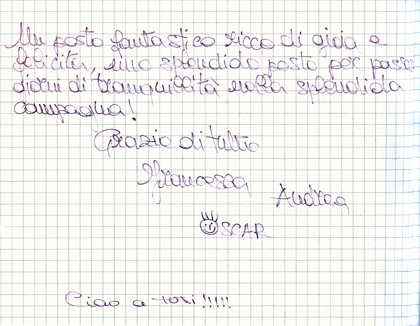 Un posto fantastico ricco di gioia e
felicità, uno splendido posto per pass
giorni di tranquillità nella splendida
campagna!
Grazie di tutto
Francesca
Andrea
OSCAR
Ciao a